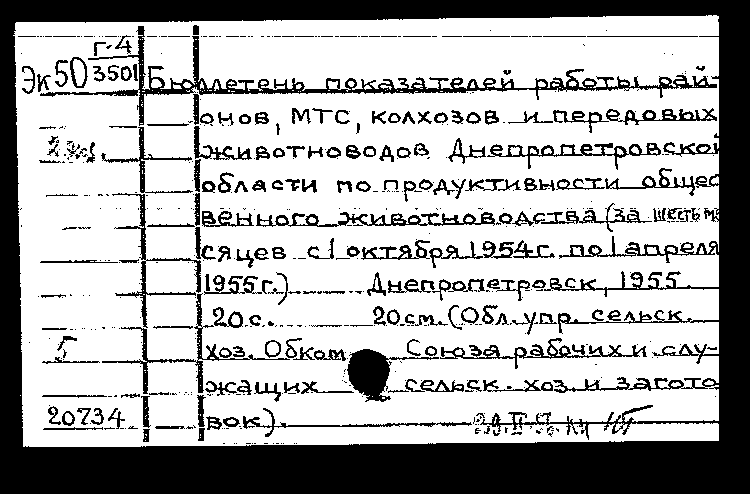 Г-4
Эк50 3501 Бюллетень показателей работы рай-
онов, МТС, колхозов и передовых
2 экз. животноводов Днепропетровской
области по продуктивности общес
венного животноводства (за шесть ме
сяцев с 1 октября 1954г. по 1 апреля
1955г.) Днепропетровск, 1955.
20с. 20см. (Обл. упр. сельск.
5 хоз. Обком Союза рабочих и слу-
жащих сельск. хоз. и загото
20734 вок).